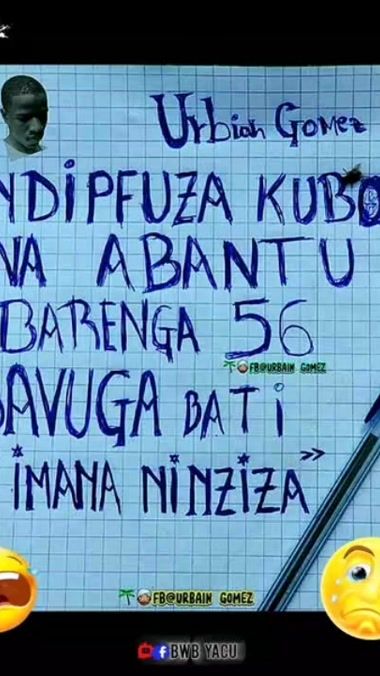 Urbian Gomez
NDIPFUZA KUBO
NA ABANTU
BARENGA 56
FB@URBAIN GOMEZ
BAVUGA BATI
IMANA NINZIZA”
FB@URBAIN GOMEZ
BWB YACU